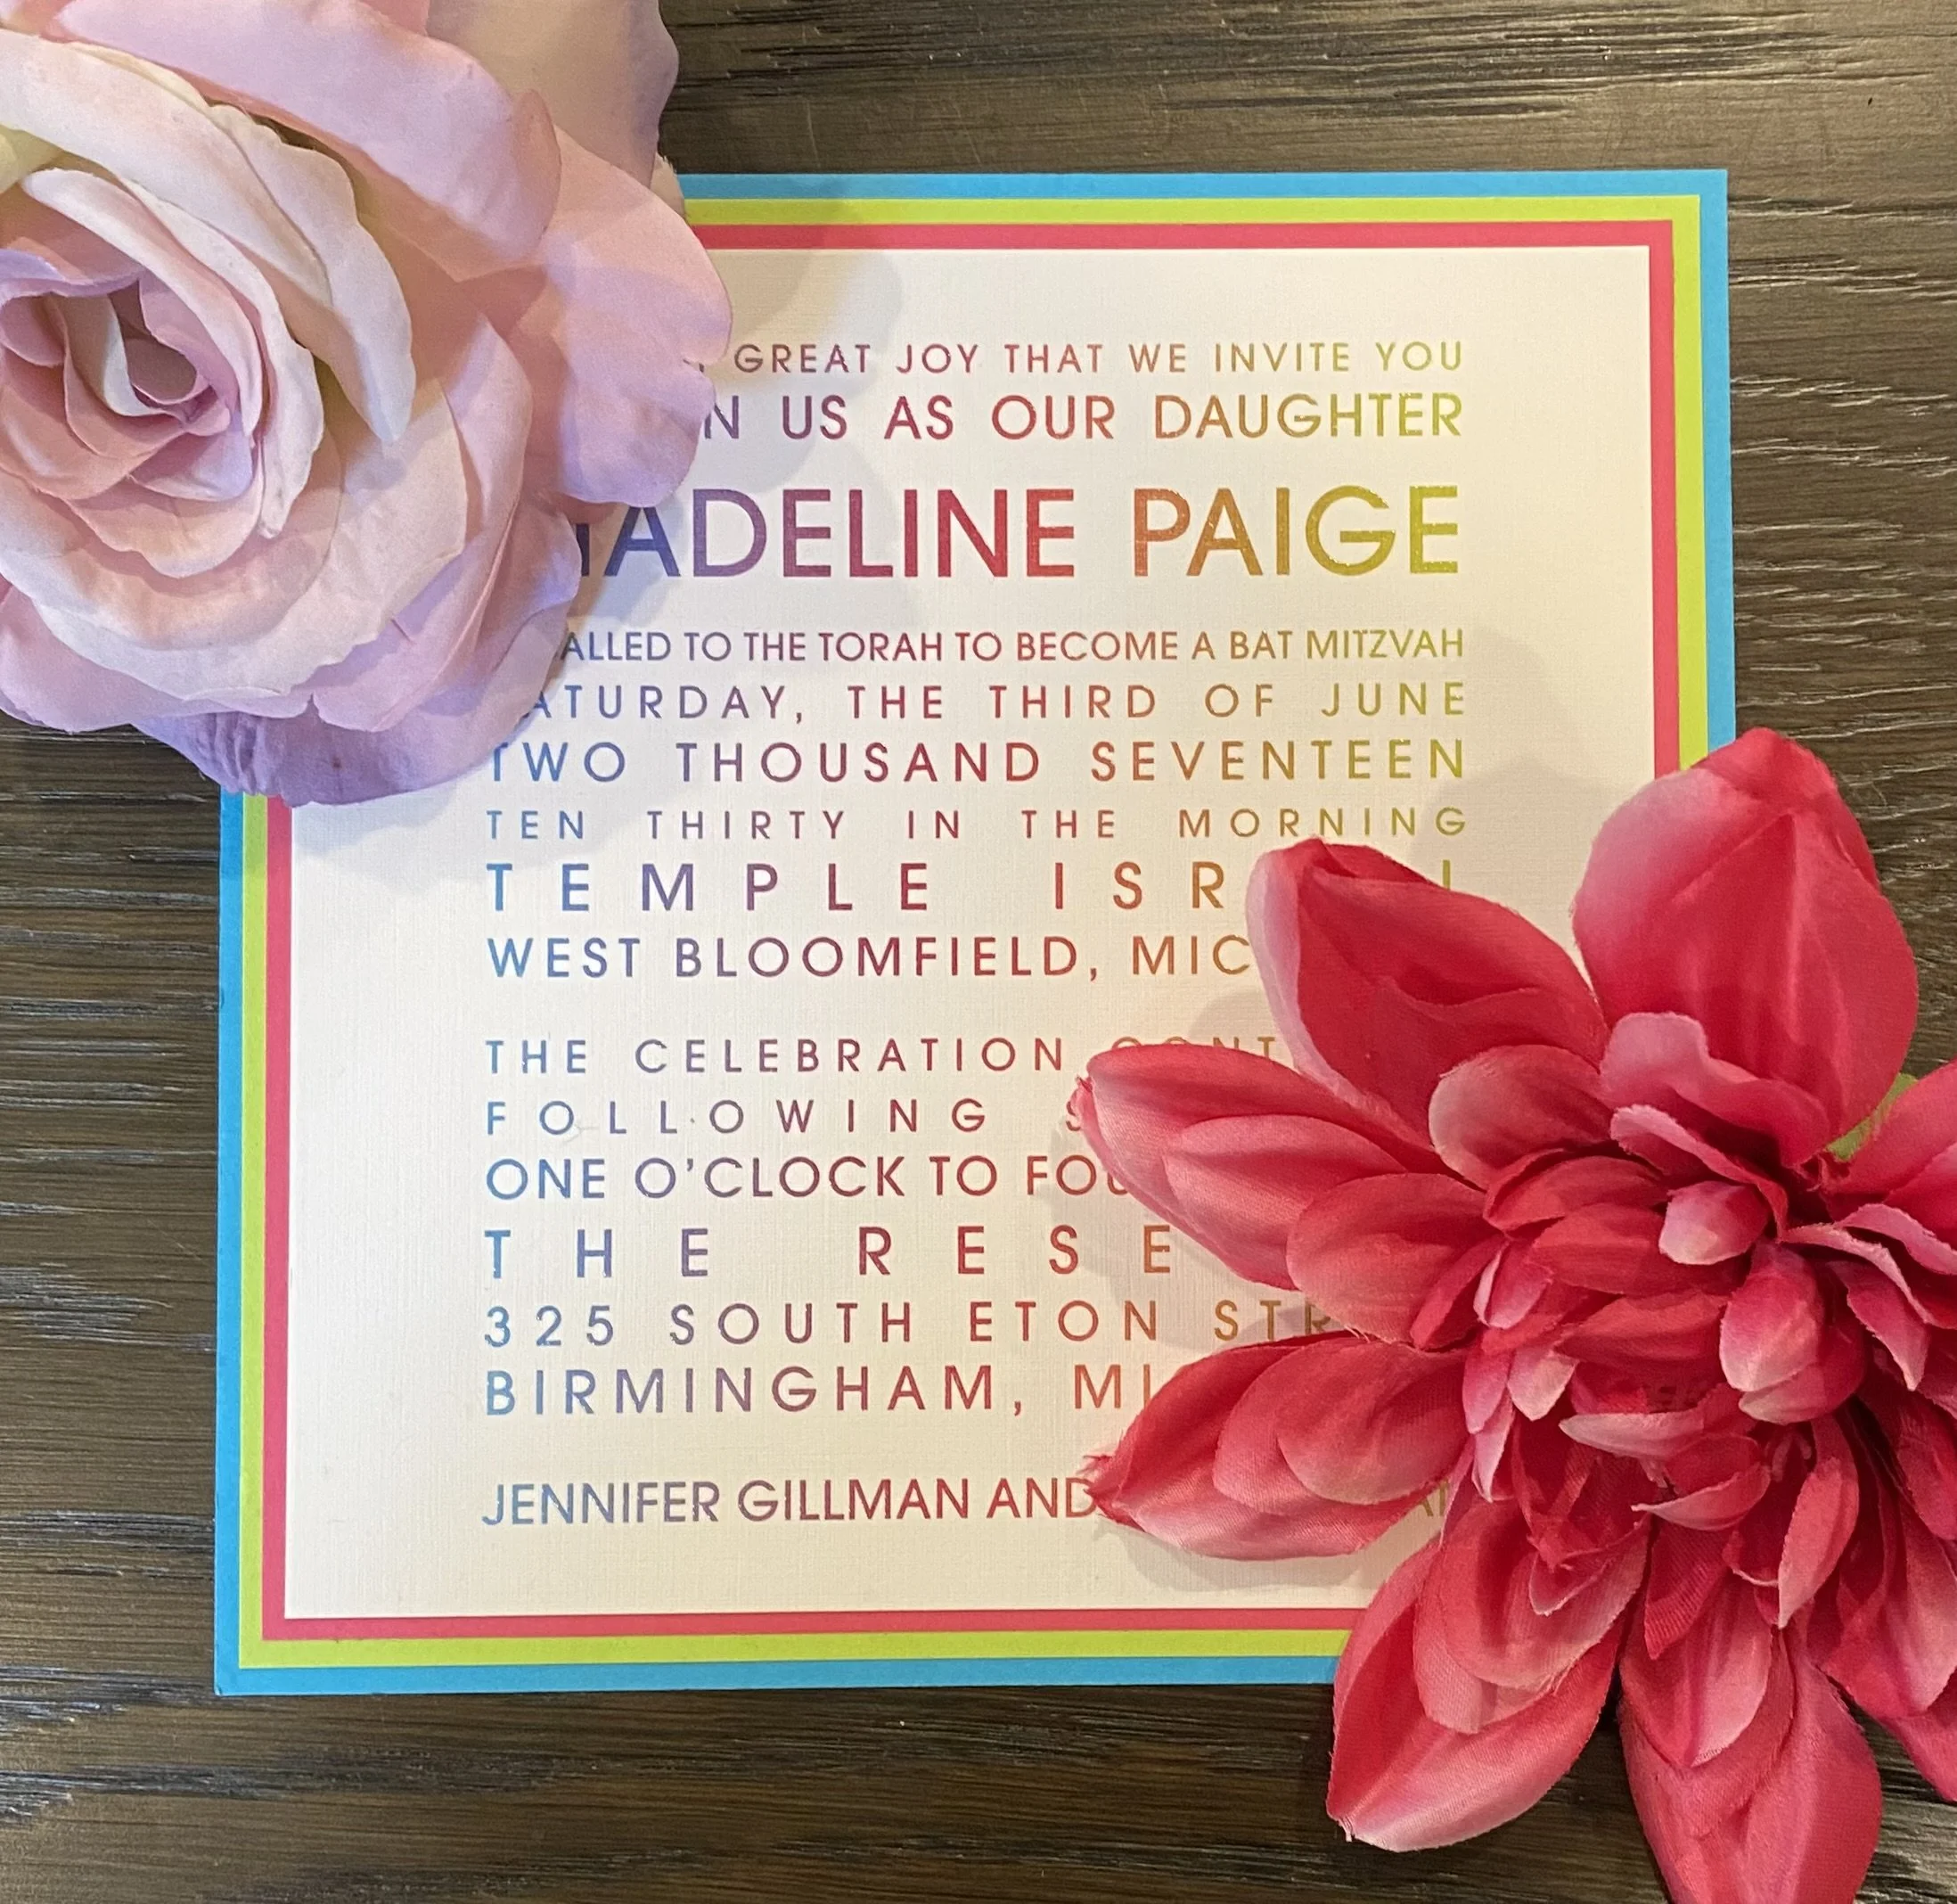 GREAT JOY THAT WE INVITE YOU
US AS OUR DAUGHTER
MADELINE PAIGE
CALLED TO THE TORAH TO BECOME A BAT MITZVAH
SATURDAY, THE THIRD OF JUNE
TWO THOUSAND SEVENTEEN
TEN THIRTY IN THE MORNING
TEMPLE ISRAEL
WEST BLOOMFIELD, MIC
THE CELEBRATION CONT
FOLLOWING
ONE O'CLOCK TO FOU
THE RESE
325 SOUTH ETON STR
BIRMINGHAM, MI
JENNIFER GILLMAN AND